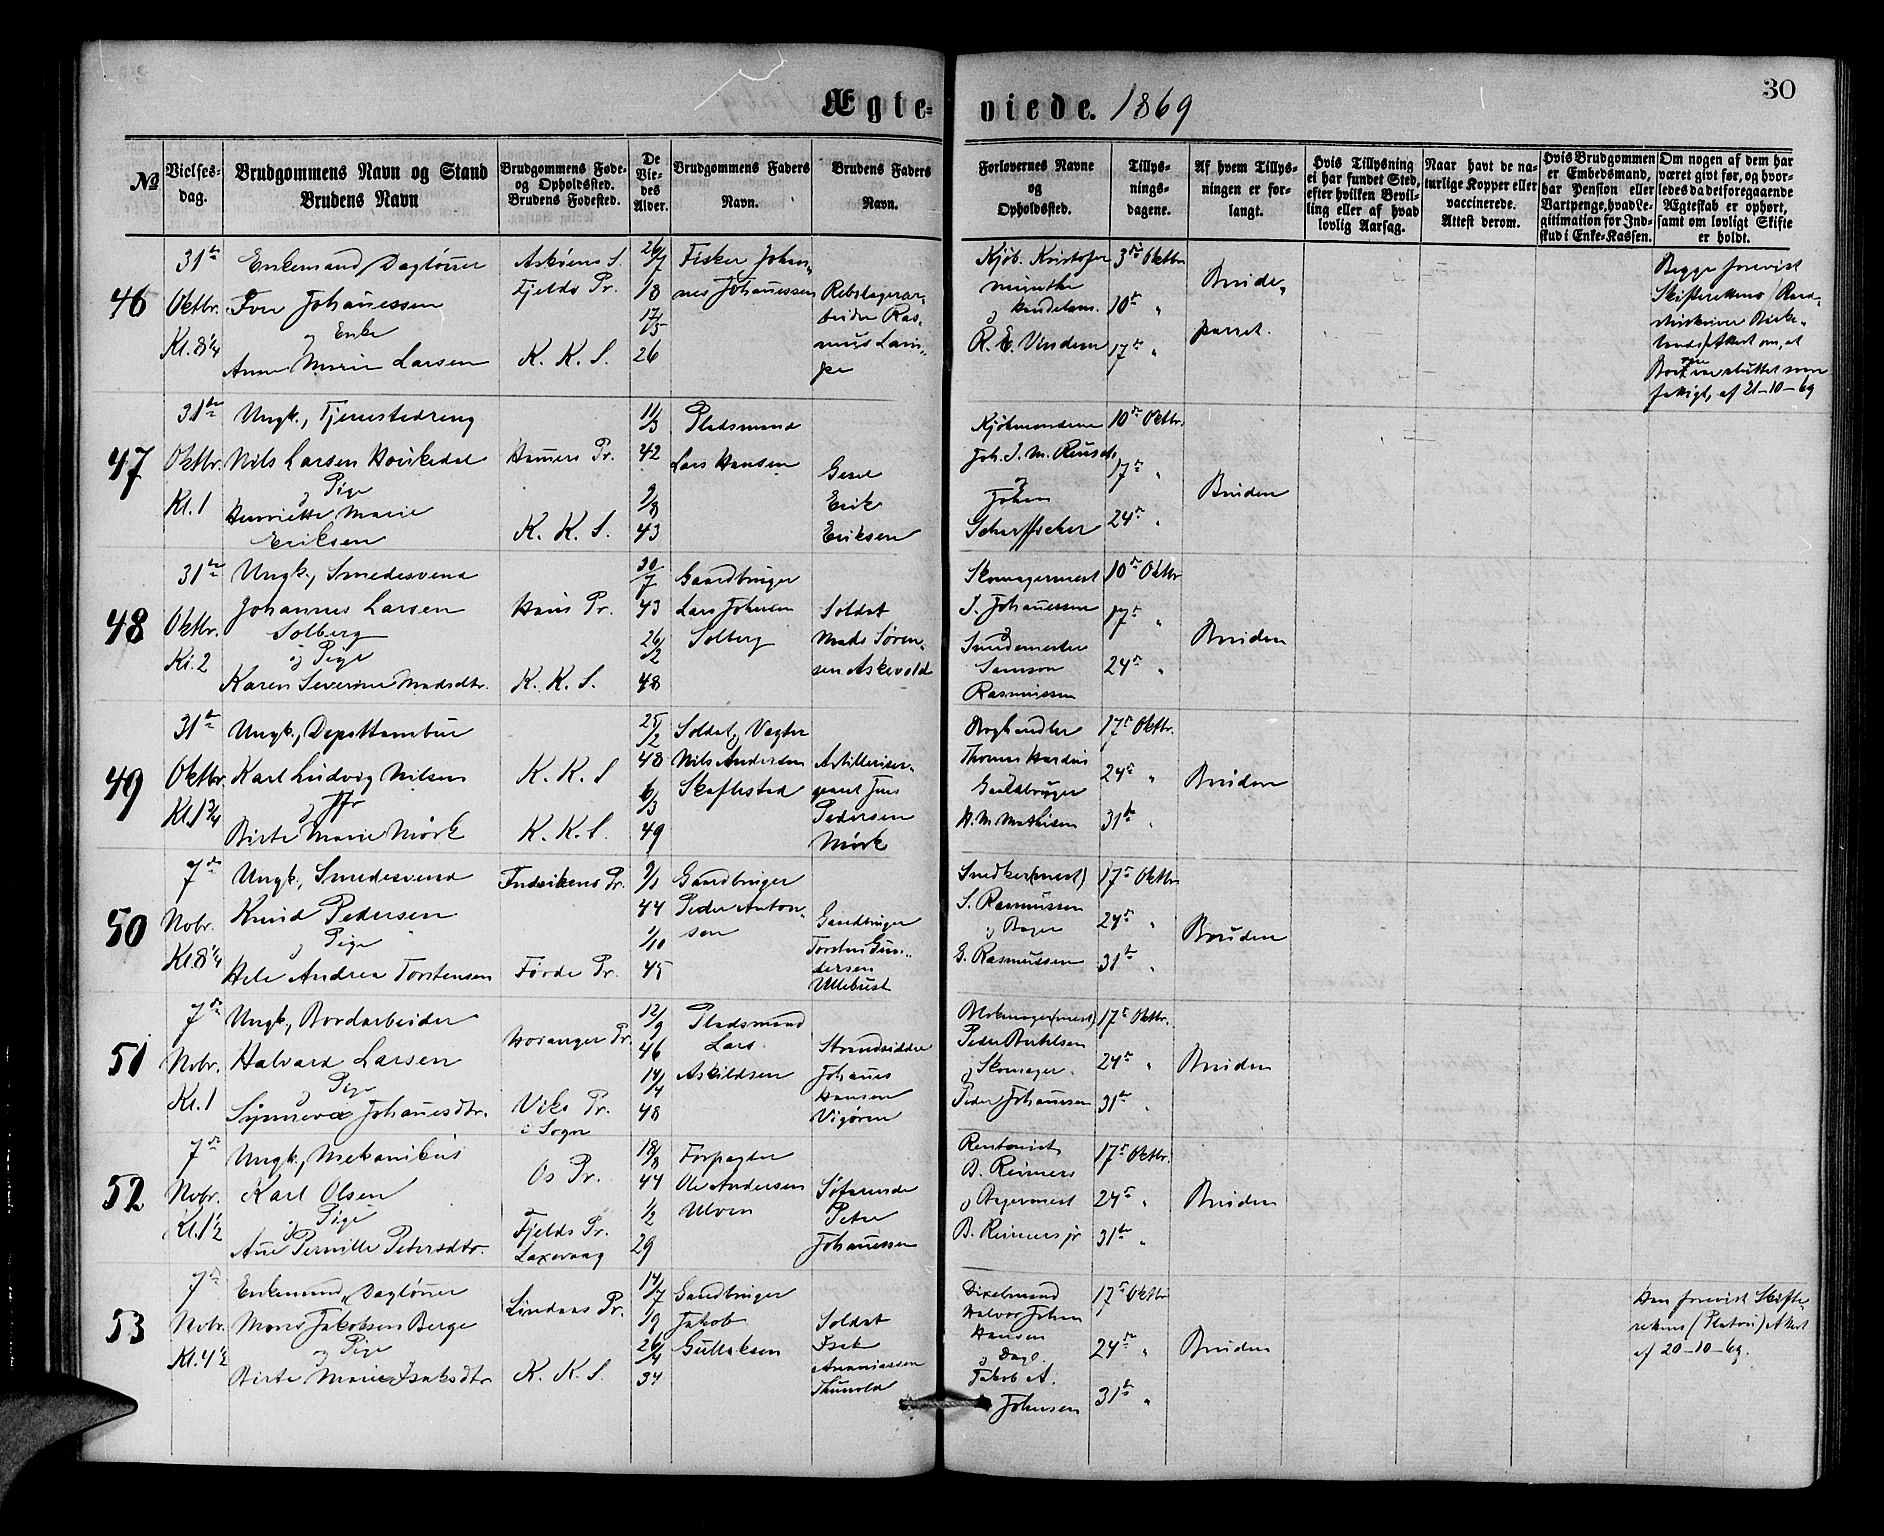 30
Ægte-
viede. 1869
No
Vielses-
dag.
Brudgommens Navn og Stand
Brudens Navn
Brudgommens Føde-
og Opholdssted.
Brudens Fødested.
De
Vie-
des
Alder.
Brudgommens Faders
Navn.
Brudens Faders
Navn.
Forlovernes Navne
og
Opholdssted.
Tillys-
nings-
dagene.
Af hvem Tillys-
ningen er for-
langt.
Hvis Tillysning
ei har fundet Sted,
efter hvilken Bevil-
ling eller af hvad
lovlig Aarsag.
Naar havt de na-
turlige Kopper eller
vaccinerede.
Attest derom.
Hvis Brudgommen
er Embedsmand,
har Pension eller
Vartpenge, hvad Le-
gitimation for Ind-
skud i Enke-Kassen.
Om nogen af dem har
været givt før, og hvor-
ledes da det foregaaende
Ægteskab er ophørt,
samt om lovligt Skifte
er holdt.
46
31te
Oktbr.
Kl. 8 1/4
Enkemand, Dagløner
Iver Johanessen
og Enke
Anne Marie Larsen
Askøens S.
Fjelds Pr.
K. K. S.
26/7
18
17/5
26
Fisker Johan-
nes Johanessen
Rebslagerar-
beider Ras-
mus Lam-
pe
Kjøb. Kristofer
og Handelsm.
R. E. Vindem
3die Oktbr
10de "
17de "
Brude-
parret.
Begge forevist
Skifterettens
af 21-10-69
47
31te
Oktbr.
Kl. 1
Ungk., Tjenestedreng
Nils Larsen Houkedal
og Pige
Henriette Marie
Eriksen
Hammers Pr.
K. K. S.
11/3
42
9/8
43
Pladsmand
Lars Hansen
Gesel
Erik
Eriksen
Kjøbmændene
Joh. J. M. Reusch
og
Johan
10de Oktbr.
17de "
24de "
Bruden
48
31te
Oktbr.
Kl. 2
Ungk., Smedesvend
Johannes Larsen
Solberg
og Pige
Karen Severine Madsdtr.
Haus Pr.
K. K. S.
30/7
43
26/2
48
Gaardbruger
Lars Johnsen
Solberg
Soldat
Mads Søren-
sen Askevold
Skomagermest
J. Johanessen
og
Smedemester
Samson
Rasmussen
10de Oktbr
17de "
24de "
Bruden
49
31te
Oktbr.
Kl. 1 3/4
Ungk., Depottambur
Karl Ludvig Nilsen
og Jfr
Birte Marie Mørk
K. K. S
K. K. S.
25/2
48
6/3
49
Soldat, Vægter
Nils Andersen
Skaftested
Artilleriser-
geant Jens
Pedersen
Mørk
Thomas Hardus
Gaardbruger
H. M. Mathisen
17de Oktbr.
24de "
31te "
Bruden
50
7de
Nobr.
Kl. 8 1/4
Ungk., Smedesvend
Knud Pedersen
og Pige
Hele Andrea Torstensen
Indvikens Pr.
Førde Pr.
9/1
44
1/10
45
Gaardbruger
Peder Anton-
sen
Gaardbruger
Torsten Gun-
dersen
Ullebust
Snedker(mest)
S. Rasmussen
og Bager
G. Rasmussen
17de Oktbr
24de "
31te "
Bruden
51
7de
Nobr.
Kl. 1
Ungk., Bordarbeider
Halvard Larsen
og Pige
Synneva Johanesdtr.
Hosanger Pr.
Viks Pr.
i Sogn
12/9
46
14/4
48
Pladsmand
Lars
Askildsen
Strandsidder
Johanes
Hansen
Vigøren
Blokmager(mest)
Peder Bertelsen
og Skomager
Peder Johanesen
17de Oktbr.
24de "
31te "
Bruden
52
7de
Nobr.
Kl. 1 1/2
Ungk., Mekanikus
Karl Olsen
og Pige
Ane Pernille Petersdtr.
Os Pr.
Fjelds Pr.
Laxevaag
18/8
44
1/2
29
Forpagter
Ole Andersen
Ulven
Søfarende
Peter
Johanessen
Rentenist
B. Reimers
og Bagermest
B. Reimers jr
17de Oktbr.
24de "
31te "
Bruden
53
7de
Nobr.
Kl. 4 1/2
Enkemand, Dagløner
Mons Jakobsen Berge
og Pige
Birte Marie Isaksdtr
Lindaas Pr.
K. K. S.
14/7
19
26/4
34
Gaardbruger
Jakob
Gullaksen
Soldat
Isak
Ananiassen
Thunold
Dixelmand
Halvor Johan
Hansen
og Dagl.
Jakob A.
Johnsen
17de Oktbr
24de "
31te "
Bruden
Han forevist Skifte-
rettens (Platou) Attest
af 20-10-69.